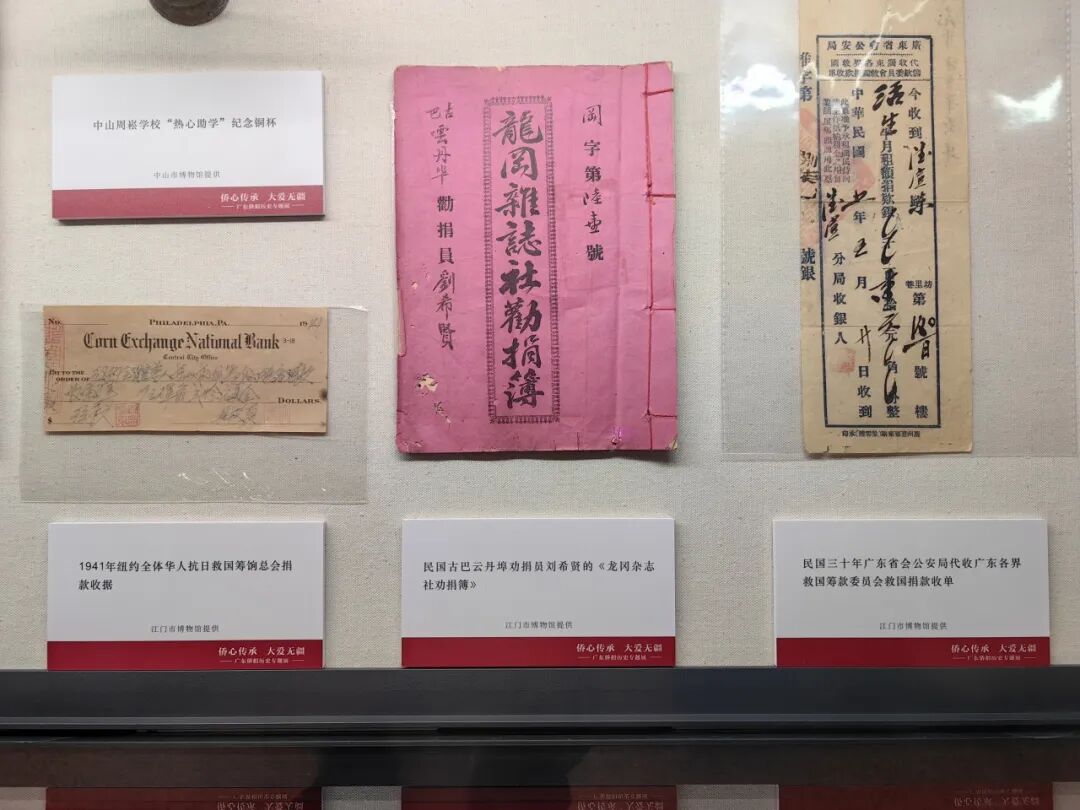 中山周崧学校“热心助学”纪念铜杯
中山市博物馆提供
侨心传承 大爱无疆
广东侨捐历史专题展
No.
PHILADELPHIA, PA.
19
Corn Exchange National Bank 3-18
Central City Office
PAY TO THE
ORDER OF
DOLLARS
$
1941年纽约全体华人抗日救国筹饷总会捐
款收据
江门市博物馆提供
侨心传承 大爱无疆
广东侨捐历史专题展
岡字第陸壹號
龍岡雜誌社勸捐簿
古巴雲丹埠勸捐員劉希賢
民国古巴云丹埠劝捐员刘希贤的《龙冈杂志
社劝捐簿》
江门市博物馆提供
侨心传承 大爱无疆
广东侨捐历史专题展
廣東省會公安局
代收廣東各界救國
今收到
第
號
樓
中華民國
年五月
日收到
分局收銀人
號銀
民国三十年广东省会公安局代收广东各界
救国筹款委员会救国捐款收单
江门市博物馆提供
侨心传承 大爱无疆
广东侨捐历史专题展